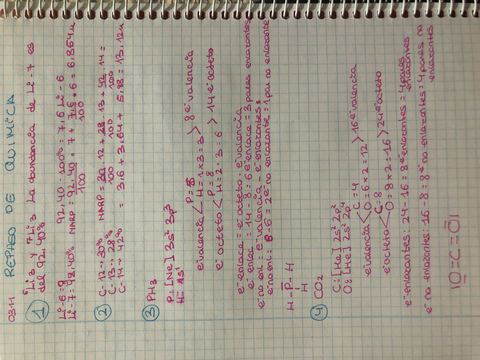 0311 REPASO DE QUÍMICA
① ⁶Li 3 y 7Li 3 La abundancia de Li-7 es
del 92.40%
Li-6:
Li-7: 92.40%
92.40-100% = 7.6 Li-6
MARP = 92.40 · 7 + 7.6 · 6 = 6.864u
100
② C-12 → 30%
C-13 → 28%
C-14 → 42%
MARP = 30 · 12 + 28 · 13 + 42 · 14 =
100 100 100
= 3.6 + 3.64 + 5.88 = 13.12u
③ PH3
P: [Ne] 3s² 3p³
H: 1s¹
e⁻valencia P = 5
H = 1 × 3 = 3 > 8 e⁻valencia
e⁻octeto P = 8
H = 2 · 3 = 6 > 14 e⁻octeto
e⁻enlace = e⁻octeto - e⁻valencia
e⁻enlac = 14 - 8 = 6 e⁻enlace = 3 pares enlazantes
e⁻no en = e⁻valencia - e⁻enlazantes
e⁻no en = 8 - 6 = 2e⁻ no enlazante 1 par no enlazante
H - P - H
H
④ CO2
C: [He] 2s² 2p²
O: [He] 2s² 2p⁴
e⁻valencia C = 4
O = 6 × 2 = 12 > 16 e⁻valencia
e⁻octeto C = 8
O = 8 × 2 = 16 > 24 e⁻octeto
e⁻enlazantes: 24 - 16 = 8 e⁻enlazantes = 4 pares
enlazantes
e⁻no enlazantes: 16 - 8 = 8 e⁻no enlazantes = 4 pares no
enlazantes
|O = C = O|